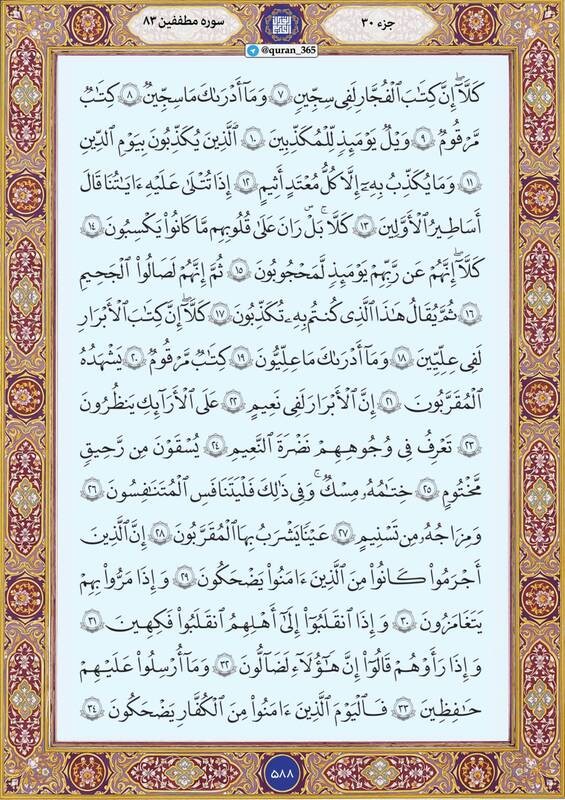 جزء ۳۰
سوره مطففین ۸۳
@quran_365
كَلَّآ إِنَّ كِتَٰبَ ٱلْفُجَّارِ لَفِى سِجِّينٍ ٧ وَمَآ أَدْرَىٰكَ مَا سِجِّينٌ ٨ كِتَٰبٌ
مَّرْقُومٌ ٩ وَيْلٌ يَوْمَئِذٍ لِّلْمُكَذِّبِينَ ١٠ ٱلَّذِينَ يُكَذِّبُونَ بِيَوْمِ ٱلدِّينِ
١١ وَمَا يُكَذِّبُ بِهِۦٓ إِلَّا كُلُّ مُعْتَدٍ أَثِيمٍ ١٢ إِذَا تُتْلَىٰ عَلَيْهِ ءَايَٰتُنَا قَالَ
أَسَاطِيرُ ٱلْأَوَّلِينَ ١٣ كَلَّا ۖ بَلْ ۜ رَانَ عَلَىٰ قُلُوبِهِم مَّا كَانُوا۟ يَكْسِبُونَ ١٤
كَلَّآ إِنَّهُمْ عَن رَّبِّهِمْ يَوْمَئِذٍ لَّمَحْجُوبُونَ ١٥ ثُمَّ إِنَّهُمْ لَصَالُوا۟ ٱلْجَحِيمِ
١٦ ثُمَّ يُقَالُ هَٰذَا ٱلَّذِى كُنتُم بِهِۦ تُكَذِّبُونَ ١٧ كَلَّآ إِنَّ كِتَٰبَ ٱلْأَبْرَارِ
لَفِى عِلِّيِّينَ ١٨ وَمَآ أَدْرَىٰكَ مَا عِلِّيُّونَ ١٩ كِتَٰبٌ مَّرْقُومٌ ٢٠ يَشْهَدُهُ
ٱلْمُقَرَّبُونَ ٢١ إِنَّ ٱلْأَبْرَارَ لَفِى نَعِيمٍ ٢٢ عَلَى ٱلْأَرَآئِكِ يَنظُرُونَ
٢٣ تَعْرِفُ فِى وُجُوهِهِمْ نَضْرَةَ ٱلنَّعِيمِ ٢٤ يُسْقَوْنَ مِن رَّحِيقٍ
مَّخْتُومٍ ٢٥ خِتَٰمُهُۥ مِسْكٌ ۚ وَفِى ذَٰلِكَ فَلْيَتَنَافَسِ ٱلْمُتَنَٰفِسُونَ ٢٦
وَمِزَاجُهُۥ مِن تَسْنِيمٍ ٢٧ عَيْنًا يَشْرَبُ بِهَا ٱلْمُقَرَّبُونَ ٢٨ إِنَّ ٱلَّذِينَ
أَجْرَمُوا۟ كَانُوا۟ مِنَ ٱلَّذِينَ ءَامَنُوا۟ يَضْحَكُونَ ٢٩ وَإِذَا مَرُّوا۟ بِهِمْ
يَتَغَامَزُونَ ٣٠ وَإِذَا ٱنقَلَبُوٓا۟ إِلَىٰٓ أَهْلِهِمُ ٱنقَلَبُوا۟ فَكِهِينَ ٣١
وَإِذَا رَأَوْهُمْ قَالُوٓا۟ إِنَّ هَٰٓؤُلَآءِ لَضَآلُّونَ ٣٢ وَمَآ أُرْسِلُوا۟ عَلَيْهِمْ
حَٰفِظِينَ ٣٣ فَٱلْيَوْمَ ٱلَّذِينَ ءَامَنُوا۟ مِنَ ٱلْكُفَّارِ يَضْحَكُونَ ٣٤
۵۸۸